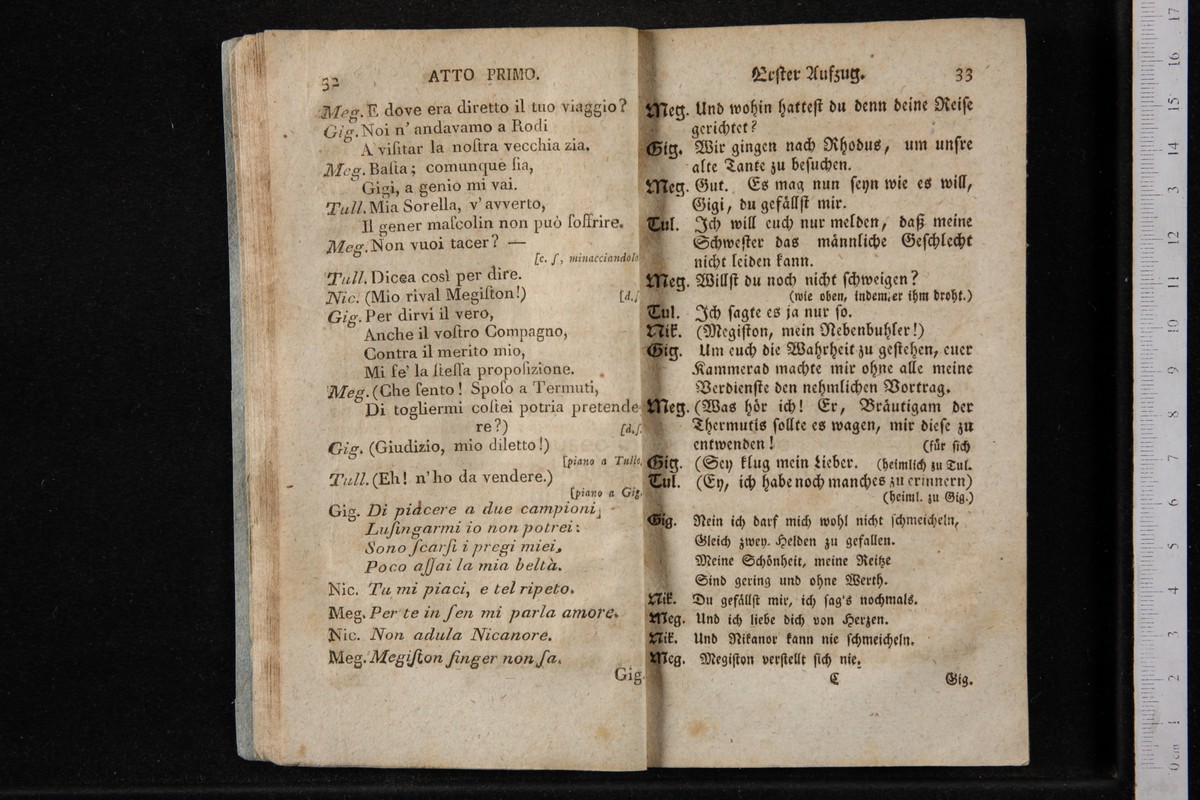 32 ATTO PRIMO.
Meg. E dove era diretto il tuo viaggio?
Gig. Noi n' andavamo a Rodi
A viſitar la noſtra vecchia zia.
Meg. Baſta; comunque ſia,
Gigi, a genio mi vai.
Tull. Mia Sorella, v' avverto,
Il gener maſcolin non può ſoffrire.
Meg. Non vuoi tacer? —
[c. ſ, minacciandolo
Tull. Dicea così per dire.
Nic. (Mio rival Megiſton!) [d.ſ.
Gig. Per dirvi il vero,
Anche il voſtro Compagno,
Contra il merito mio,
Mi fe' la ſteſſa propoſizione.
Meg. (Che ſento! Spoſo a Termuti,
Di togliermi coſtei potria pretende-
re?) [d.ſ.
Gig. (Giudizio, mio diletto!)
[piano a Tullo.
Tull. (Eh! n'ho da vendere.)
[piano a Gig.
Gig. Di piacere a due campioni
Luſingarmi io non potrei:
Sono ſcarſi i pregi miei,
Poco aſſai la mia beltà.
Nic. Tu mi piaci, e tel ripeto.
Meg. Per te in ſen mi parla amore.
Nic. Non adula Nicanore.
Meg. Megiſton finger non ſa.
Gig.
Erſter Aufzug. 33
Meg. Und wohin hatteſt du denn deine Reiſe
gerichtet?
Gig. Wir gingen nach Rhodus, um unſre
alte Tante zu beſuchen.
Meg. Gut. Es mag nun ſeyn wie es will,
Gigi, du gefällſt mir.
Tul. Ich will euch nur melden, daß meine
Schweſter das männliche Geſchlecht
nicht leiden kann.
Meg. Willſt du noch nicht ſchweigen?
(wie oben, indem er ihm droht.)
Tul. Ich ſagte es ja nur ſo.
Nik. (Megiſton, mein Nebenbuhler!)
Gig. Um euch die Wahrheit zu geſtehen, euer
Kammerad machte mir ohne alle meine
Verdienſte den nehmlichen Vortrag.
Meg. (Was hör ich! Er, Bräutigam der
Thermutis ſollte es wagen, mir dieſe zu
entwenden! (für ſich
Gig. (Sey klug mein Lieber. (heimlich zu Tul.
Tul. (Ey, ich habe noch manches zu erinnern)
(heiml. zu Gig.)
Gig. Nein ich darf mich wohl nicht ſchmeicheln,
Gleich zwey Helden zu gefallen.
Meine Schönheit, meine Reitze
Sind gering und ohne Werth.
Nik. Du gefällſt mir, ich ſag's nochmals.
Meg. Und ich liebe dich von Herzen.
Nik. Und Nikanor kann nie ſchmeicheln.
Meg. Megiſton verſtellt ſich nie.
C Gig.
0 cm 1 2 3 4 5 6 7 8 9 10 11 12 13 14 15 16 17